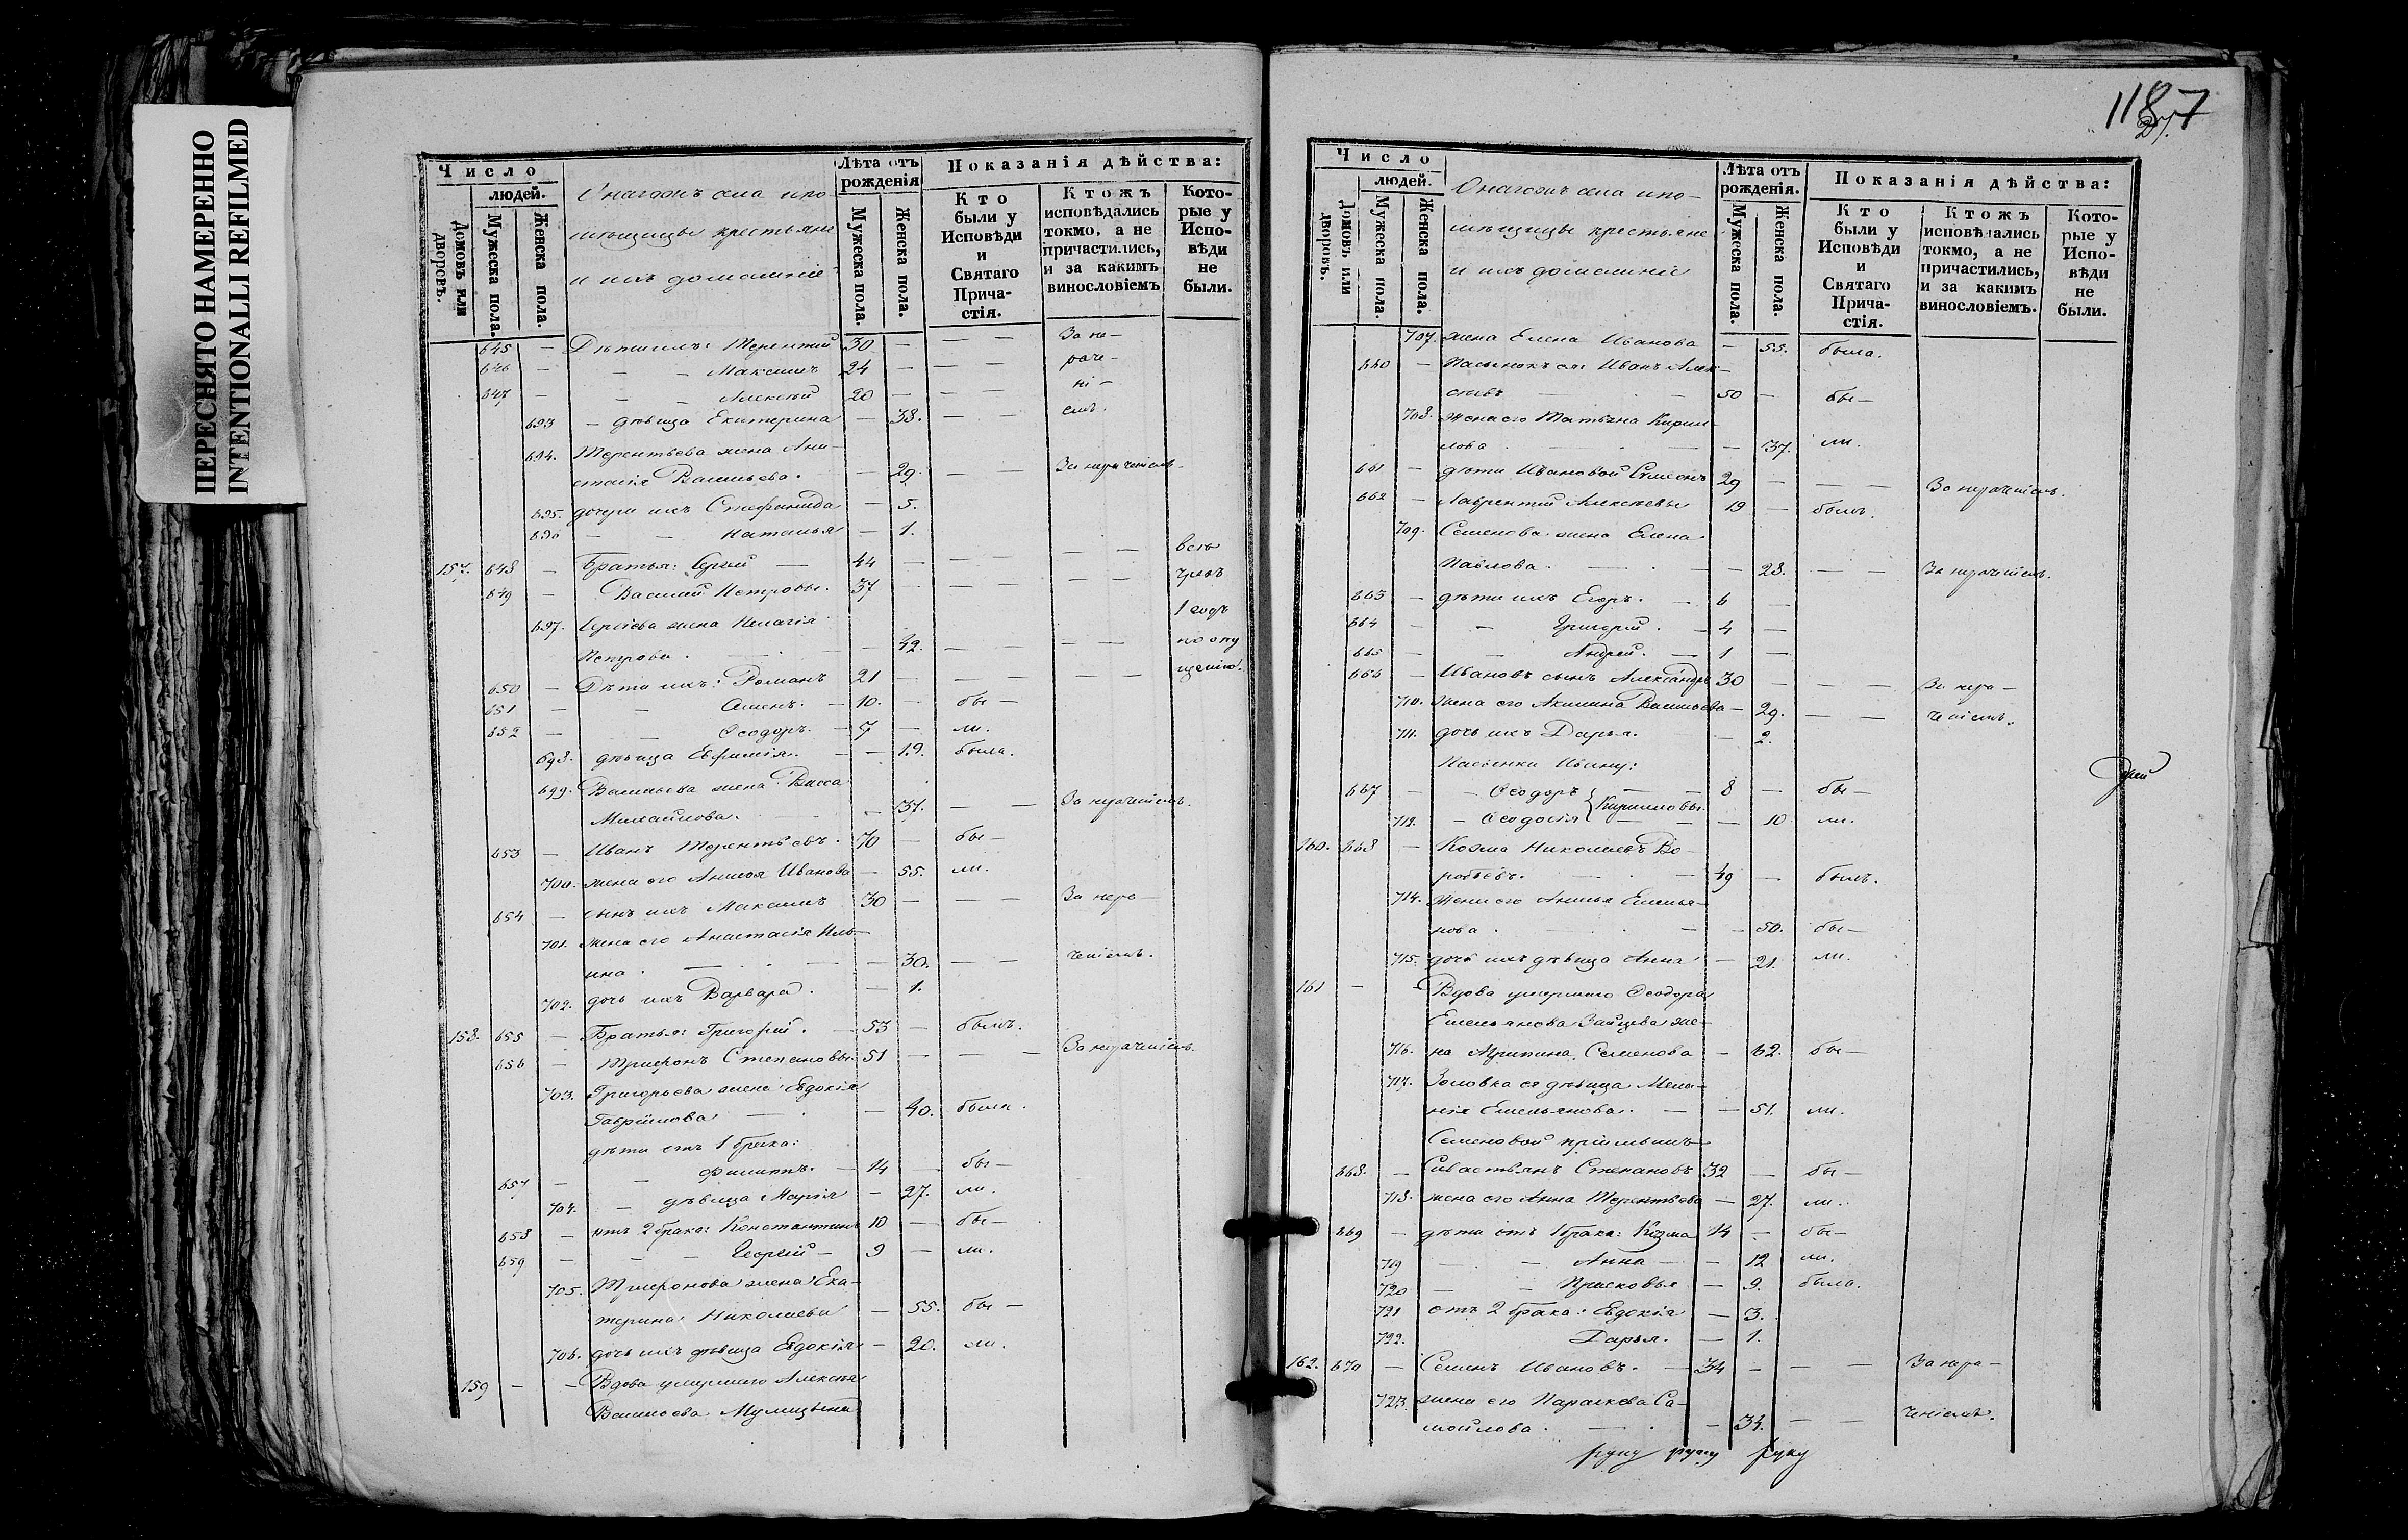 ПЕРЕСНЯТО НАМЕРЕННО
INTENTIONALLI REFILMED
Число
людей.
Домовъ или дворовъ.
Мужеска пола.
Женска пола.
Онагожъ села кре-
крестьяне
и ихъ домашніе
Лѣта отъ рожденія
Мужеска пола.
Женска пола.
Показанія дѣйства:
Кто были у Исповѣди и Святаго Причастія.
Ктожъ исповѣдались токмо, а не причастились, и за какимъ винословіемъ
Которые у Исповѣди не были.
645 — Дѣти ихъ: Терентий 30 — — — За не-
646 — — — Максимъ 24 — — — раче-
647 — — — Алексѣй 20 — — ні-
693 — дѣвица Екатерина — 38. — — емъ.
694. Терентьева жена Ана-
стасія Васильева. — 29. — — За нераченіемъ.
695. дочери ихъ Стефанида — 5.
696 — — Наталья — 1.
157. 648 — Братья: Сергей — 44 — — — — — весь
649 — Василий Петровы. 37 — — — — — чрезъ
697. Сергіева жена Пелагія 1 годъ
Петрова. — — 42. — — — — по опу
650 — Дѣти ихъ: Романъ 21 — — — — — щенію.
651 — — Семенъ. — 10. — бы —
652 — — Ѳеодоръ. — 7 — ли.
698. дѣвица Евфимія. — — 19. была.
699. Васильева жена Васса
Михайлова. — 37. — — За нераченіемъ.
653 — Иванъ Терентьевъ. 70 — бы —
700. жена его Анисья Иванова — 55. ли.
654 — сынъ ихъ Максимъ 30 — — — За нера —
701. жена его Анастасія Иль-
ина. — — 30. — — ченіемъ.
702. дочь ихъ Варвара. — 1.
158. 655 — Братья: Григорій. — 53 — былъ.
656 — Трифонъ Степановы. 51 — — — За нераченіемъ.
703. Григорьева жена Евдокія
Гаврилова — — 40. была.
дѣти отъ 1 брака:
657 — — Филиппъ. — 14 — бы —
704. — дѣвица Марія — 27. ли.
658 — отъ 2 брака: Константинъ 10 — бы —
659 — — — Георгій — 9 — ли.
705. Трифонова жена Ека-
терина Николаева — 55. бы —
706. дочь ихъ дѣвица Евдокія — 20. ли.
159 — — Вдова умершаго Алексѣя
Васильева
1187
Число
людей.
Домовъ или дворовъ.
Мужеска пола.
Женска пола.
Онагожъ села
крестьяне
и ихъ домашніе
Лѣта отъ рожденія.
Мужеска пола.
Женска пола.
Показанія дѣйства:
Кто были у Исповѣди и Святаго Причастія.
Ктожъ исповѣдались токмо, а не причастились, и за какимъ винословіемъ.
Которые у Исповѣди не были.
707. жена Елена Иванова — 55. была.
660 — Пасынокъ ея: Иванъ Алек-
сѣевъ — 50 — бы —
708. жена его Татьяна Кирил-
лова — 37. ли.
661 — дѣти Ивановой Семенъ 29 — — — За нераченіемъ.
662 — Лаврентій Алексѣевы 19 — былъ.
709. Семенова жена Елена
Павлова. — — 28. — — За нераченіемъ.
663 — дѣти ихъ Егоръ. — 6 —
664 — — Григорій. — 4 —
665 — — Андрей. — 1 —
666 — Ивановъ сынъ Александръ 30 — — — За нера —
710. жена его Акилина Васильева — 29. — — ченіемъ.
711. дочь ихъ Дарья. — 2.
Пасынки Ивану:
667 — — Ѳеодоръ — — 8 — бы —
Кирилловы.
712. — Ѳеодосія — — 10 ли.
160. 668 — Козма Николаевъ Во-
робьевъ. — 49 — былъ.
714. Жена его Анисья Емелья-
нова. — — 50. бы —
715. дочь ихъ дѣвица Анна — 21. ли.
161 — — Вдова умершаго Ѳеодора
Емельянова Зайцева же-
716. на Агрипина Семенова — 62. бы —
717. Золовка ея дѣвица Мела-
нія Емельянова. — — 51. ли.
Семеновой пріемышъ
668. — Севастьянъ Степановъ 32 — бы —
718. жена его Анна Терентьева — 27. ли.
669 — дѣти отъ 1 брака: Козма 14 — бы —
719 — — Анна — — 12 ли.
720 — — Прасковья — 9. была.
721 отъ 2 брака: Евдокія — 3.
722. Дарья. — 1.
162. 670 — Семенъ Ивановъ. — 34 — — — За нера —
723. жена его Параскева Са-
мойлова. — — 34. — — ченіемъ.
руку руку руку